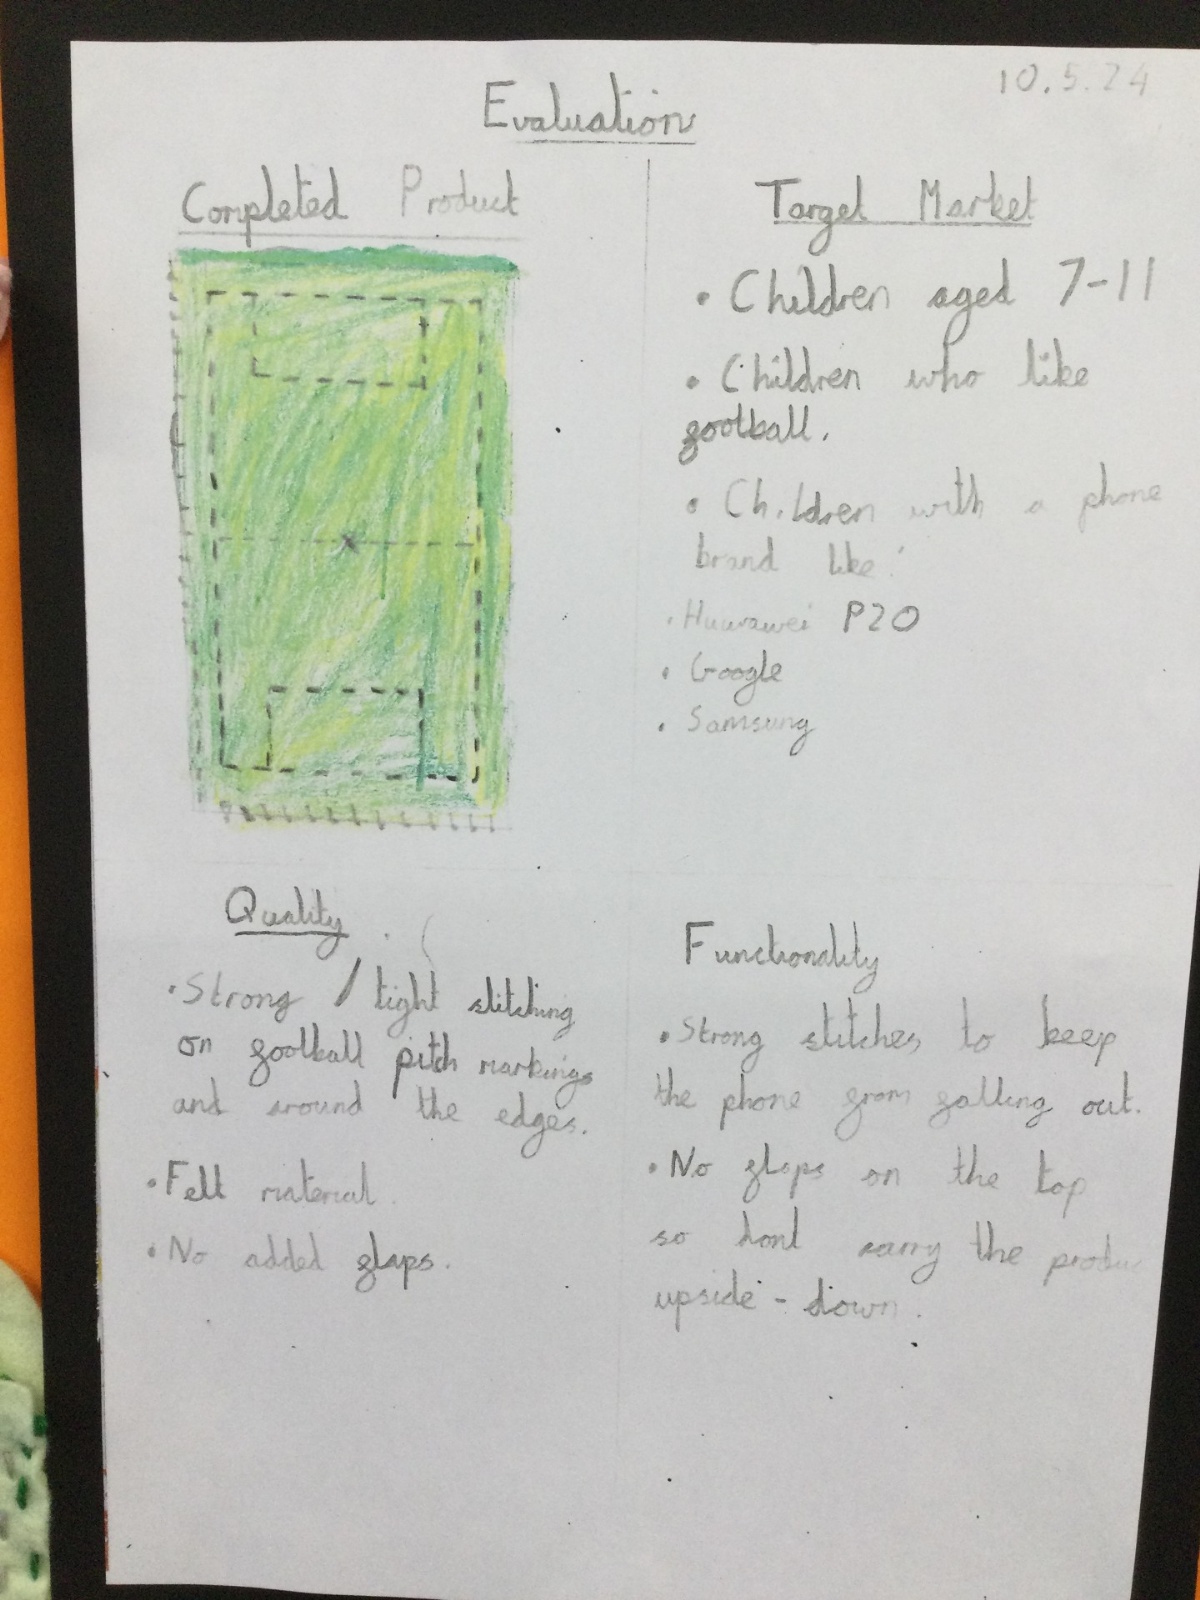 10.5.24
Evaluation
Completed Product
Target Market
• Children aged 7-11
• Children who like
football.
• Children with a phone
brand like:
• Huwawei P20
• Google
• Samsung
Quality
• Strong / tight stitching
on football pitch markings
and around the edges.
• Felt material.
• No added flaps.
Functionality
• Strong stitches to keep
the phone from falling out.
• No flaps on the top
so dont carry the produc
upside-down.